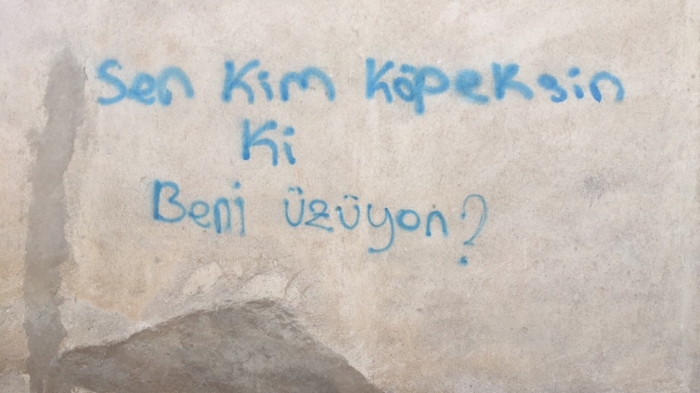 Sen Kim Köpeksin
Ki
Beni üzüyon?